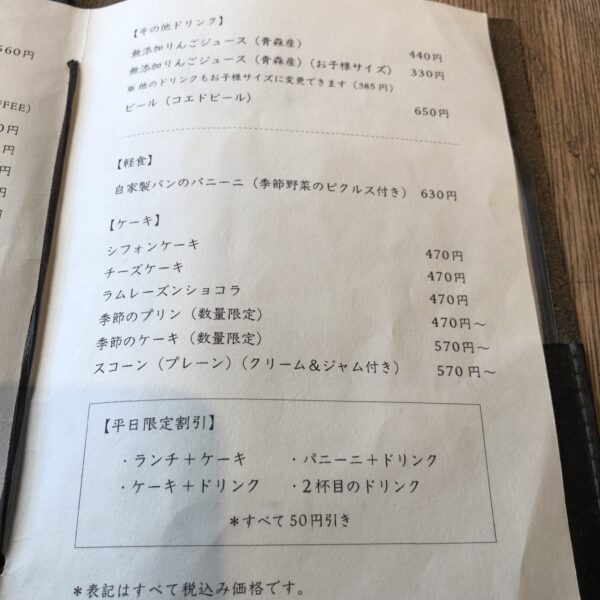 560円
FFEE)
0円
円
円
円
円
【その他ドリンク】
無添加りんごジュース（青森産） 440円
無添加りんごジュース（青森産）(お子様サイズ) 330円
※他のドリンクもお子様サイズに変更できます（385円）
ビール（コエドビール） 650円
【軽食】
自家製パンのパニーニ（季節野菜のピクルス付き） 630円
【ケーキ】
シフォンケーキ 470円
チーズケーキ 470円
ラムレーズンショコラ 470円
季節のプリン（数量限定） 470円～
季節のケーキ（数量限定） 570円～
スコーン（プレーン）（クリーム＆ジャム付き） 570円～
【平日限定割引】
・ランチ＋ケーキ ・パニーニ＋ドリンク
・ケーキ＋ドリンク ・2杯目のドリンク
＊すべて50円引き
＊表記はすべて税込み価格です。